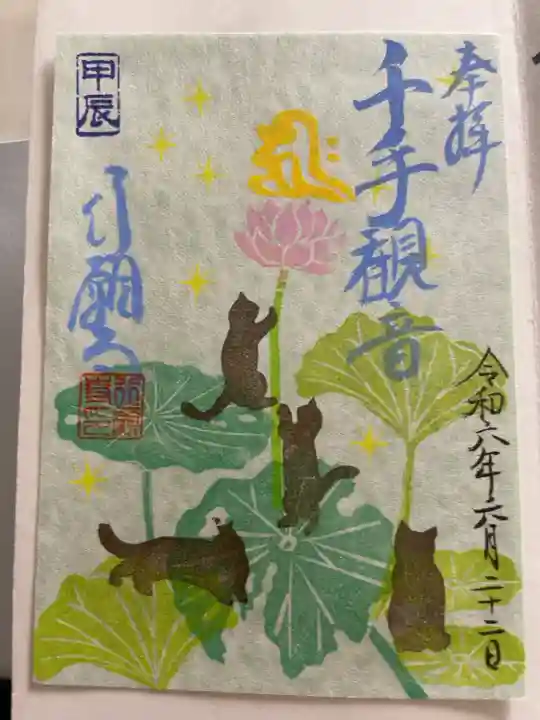 奉拝
千手観音
令和六年六月二十二日
甲辰
行願寺